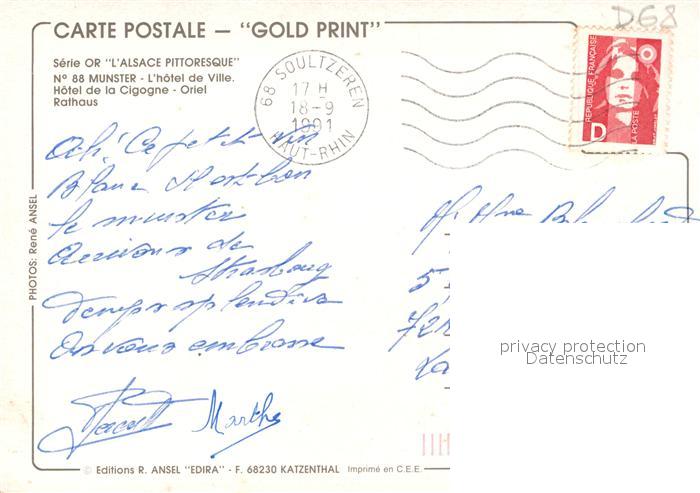 D68
CARTE POSTALE – "GOLD PRINT"
Série OR "L'ALSACE PITTORESQUE"
Nº 88 MUNSTER - L'hôtel de Ville.
Hôtel de la Cigogne - Oriel
Rathaus
68 SOULTZEREN
17 H
18-9
1991
HAUT-RHIN
REPUBLIQUE FRANÇAISE
D
LA POSTE
Ah! Ce petit vin
Blanc
le munster
de
Strasbourg
Temps splendide
On vous embrasse
Marthe
PHOTOS: René ANSEL
Mr Mme
5
72
privacy protection
Datenschutz
© Editions R. ANSEL "EDIRA" - F. 68230 KATZENTHAL Imprimé en C.E.E.